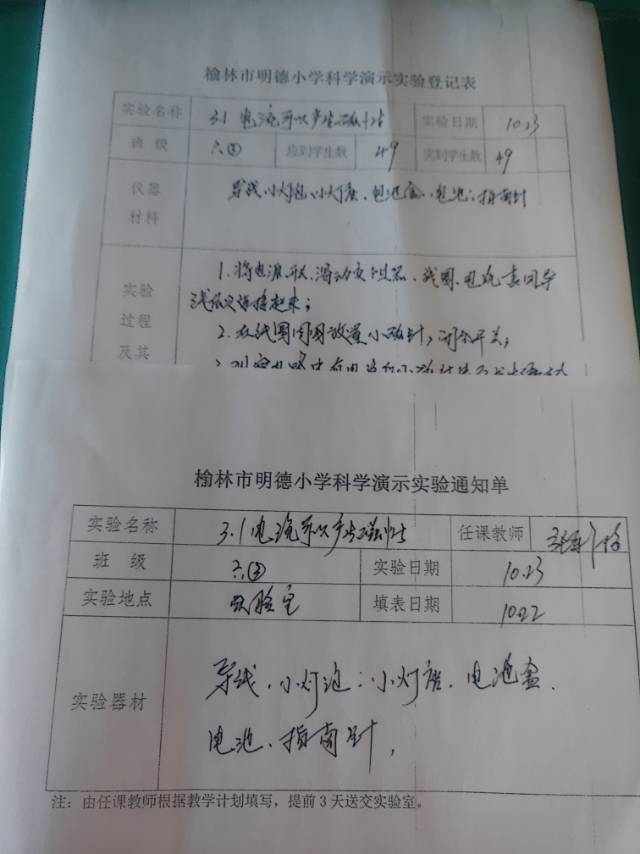 榆林市明德小学科学演示实验登记表
实验名称 3.1 电流可以产生磁性 实验日期 10.23
班级 六② 应到学生数 49 实到学生数 49
仪器材料 导线、小灯泡、小灯座、电池盒、电池、指南针
实验过程及其
1. 将电源、开关、滑动变阻器、线圈、电流表用导
线依次连接起来；
2. 在线圈周围放置小磁针，闭合开关；
榆林市明德小学科学演示实验通知单
实验名称 3.1 电流可以产生磁性 任课教师
班级 六② 实验日期 10.23
实验地点 实验室 填表日期 10.22
实验器材 导线、小灯泡、小灯座、电池盒、
电池、指南针，
注：由任课教师根据教学计划填写，提前3天送交实验室。